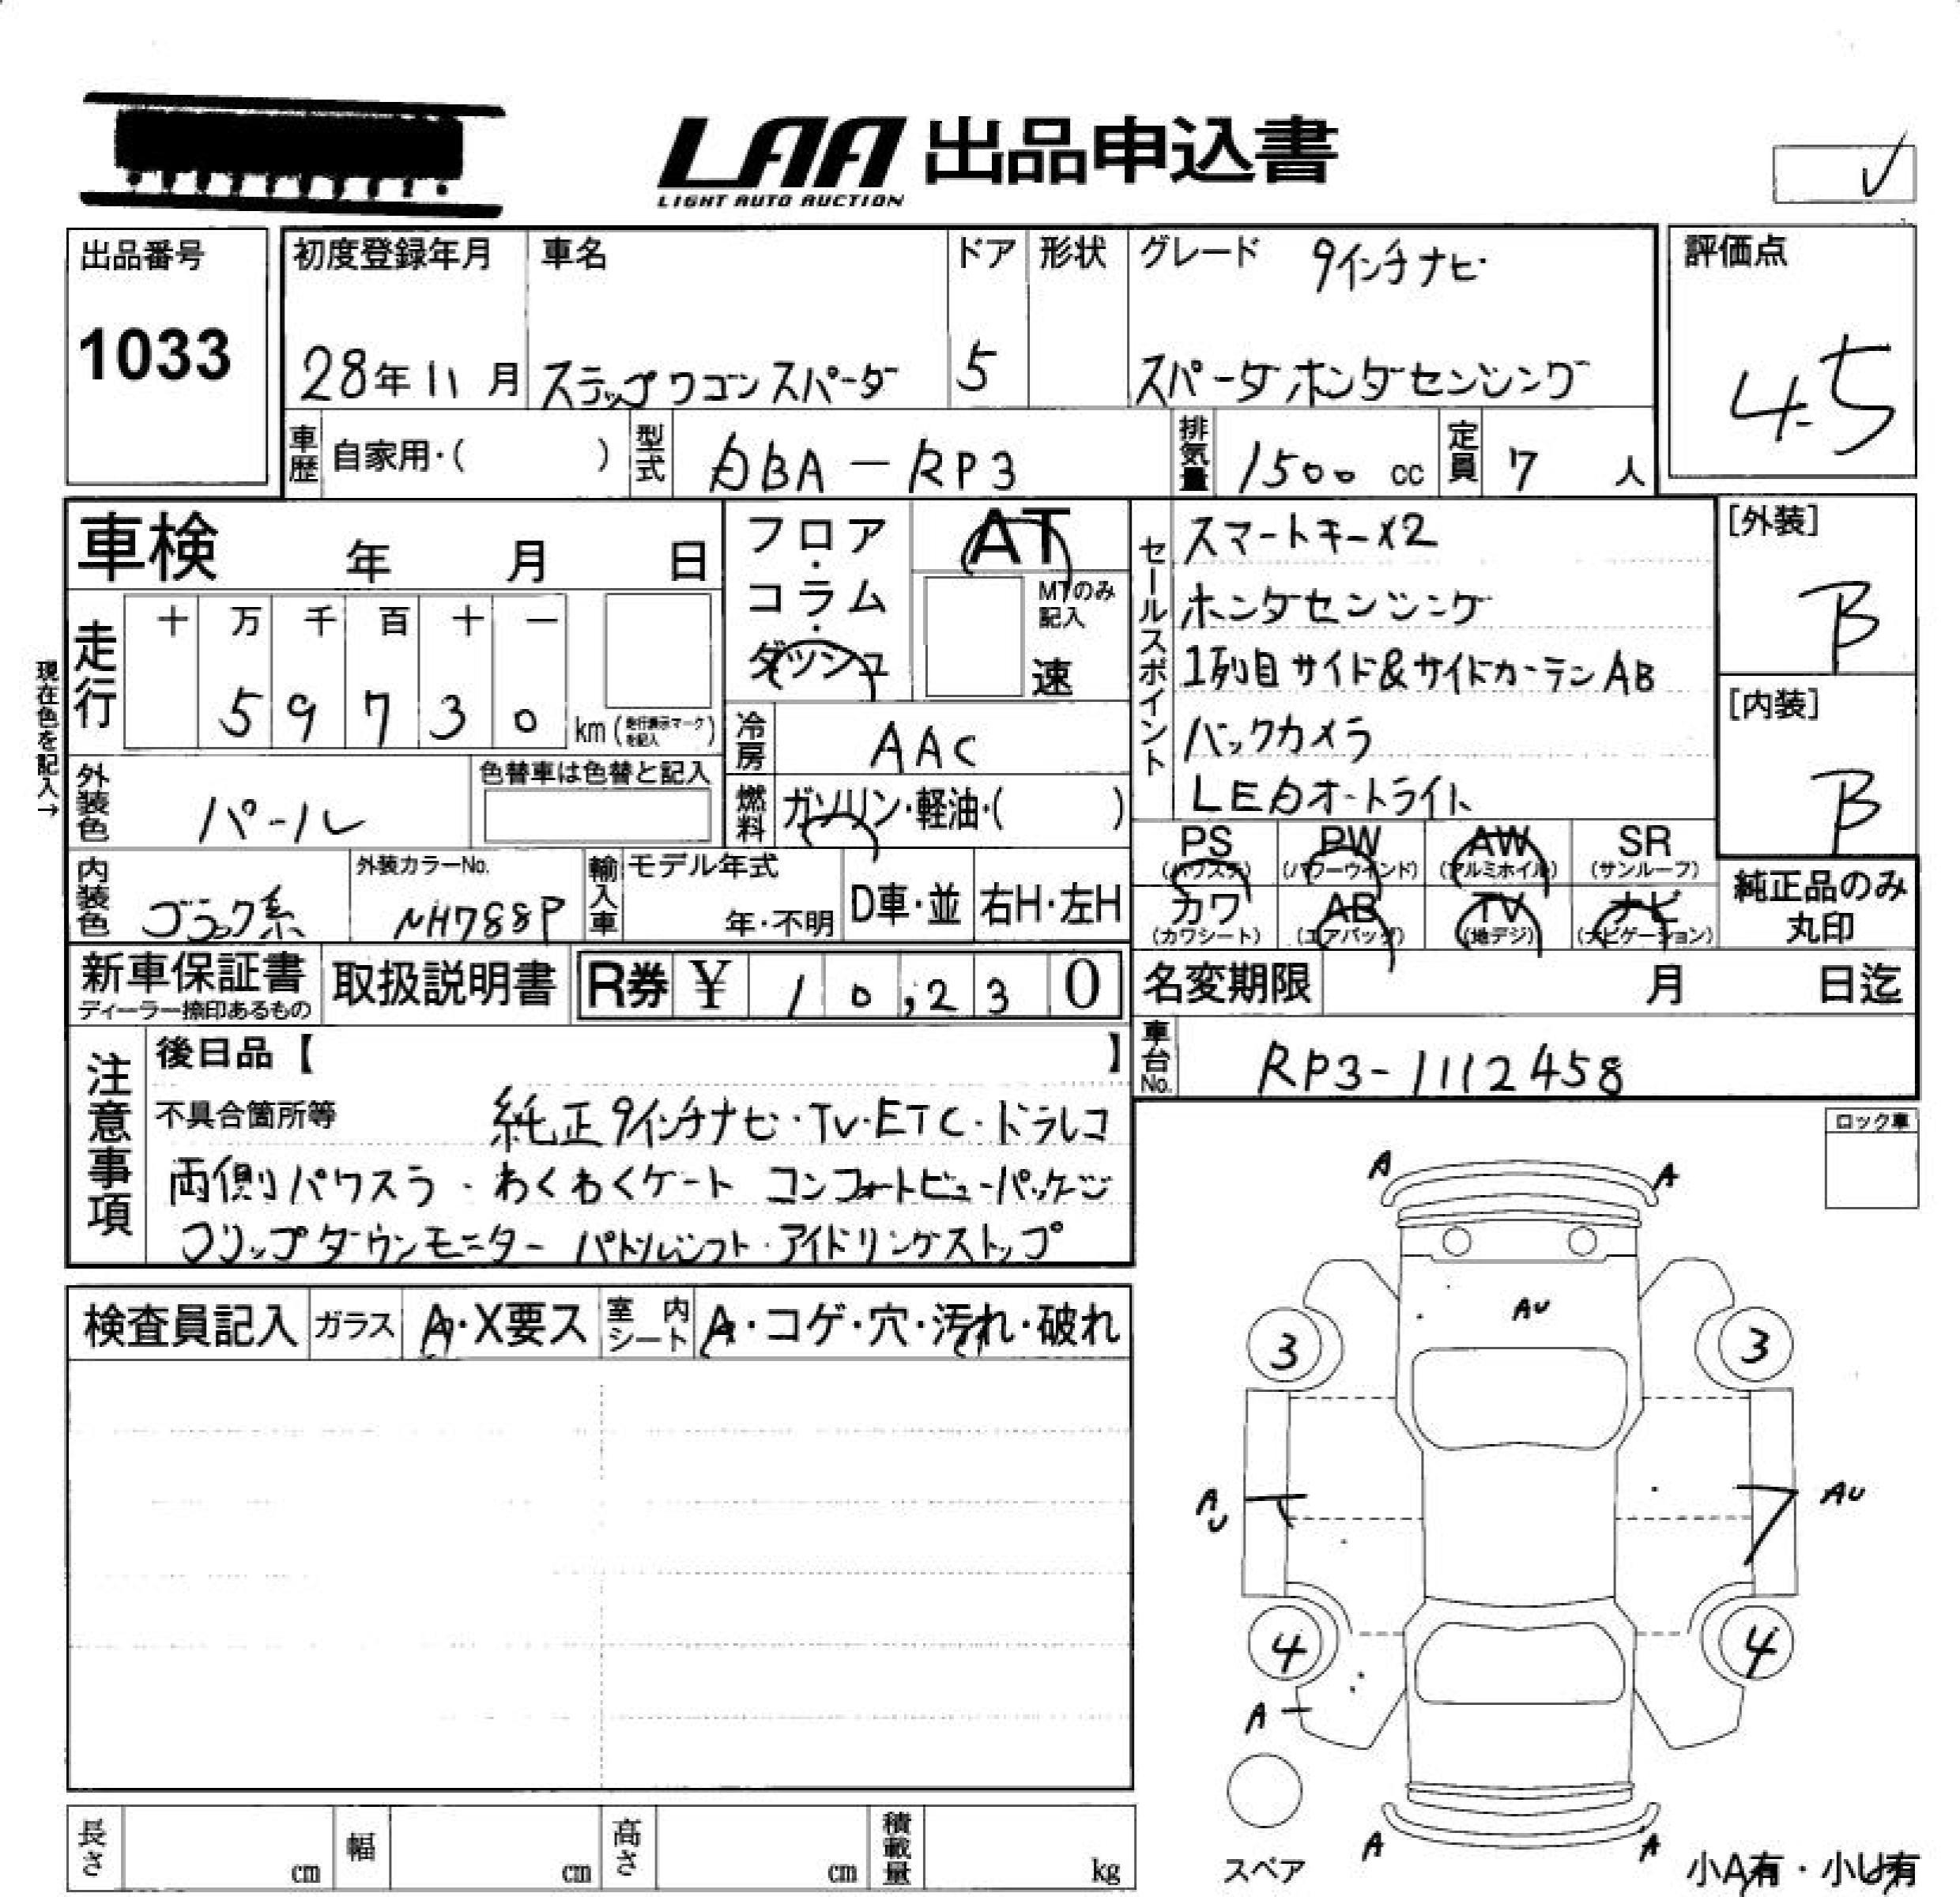 LAA 出品申込書
LIGHT AUTO AUCTION
出品番号
1033
初度登録年月
28年11月
車名
ステップワゴンスパーダ
ドア
5
形状
グレード 9インチナビ
スパーダホンダセンシング
評価点
4.5
車歴 自家用・( )
型式 DBA-RP3
排気量 1500 cc
定員 7 人
車検 年 月 日
現在色を記入→
走行
十 万 千 百 十 一
5 9 7 3 0 km (走行表示マークを記入)
外装色 パール
色替車は色替と記入
内装色 ブラック系
外装カラーNo.
NH788P
フロア・コラム・ダッシュ
AT
MTのみ記入
速
冷房 AAC
燃料 ガソリン・軽油・( )
輸入車
モデル年式
年・不明
D車・並
右H・左H
セールスポイント
スマートキー×2
ホンダセンシング
1列目サイド&サイドカーテンAB
バックカメラ
LEDオートライト
[外装]
B
[内装]
B
PS (パワステ)
PW (パワーウインド)
AW (アルミホイル)
SR (サンルーフ)
カワ (カワシート)
AB (エアバッグ)
TV (地デジ)
ナビ (ナビゲーション)
純正品のみ
丸印
新車保証書
ディーラー捺印あるもの
取扱説明書
R券 ¥ 10,230
名変期限 月 日迄
車台No. RP3-1112458
注意事項
後日品【 】
不具合箇所等 純正9インチナビ・TV・ETC・ドラレコ
両側パワスラ・わくわくゲート コンフォートビューパッケージ
フリップダウンモニター パドルシフト・アイドリングストップ
ロック車
検査員記入
ガラス A・X要ス
室内シート A・コゲ・穴・汚れ・破れ
A A
AU
3 3
AU AU
4 4
A
A A
スペア
小A有・小U有
長さ cm
幅 cm
高さ cm
積載量 kg